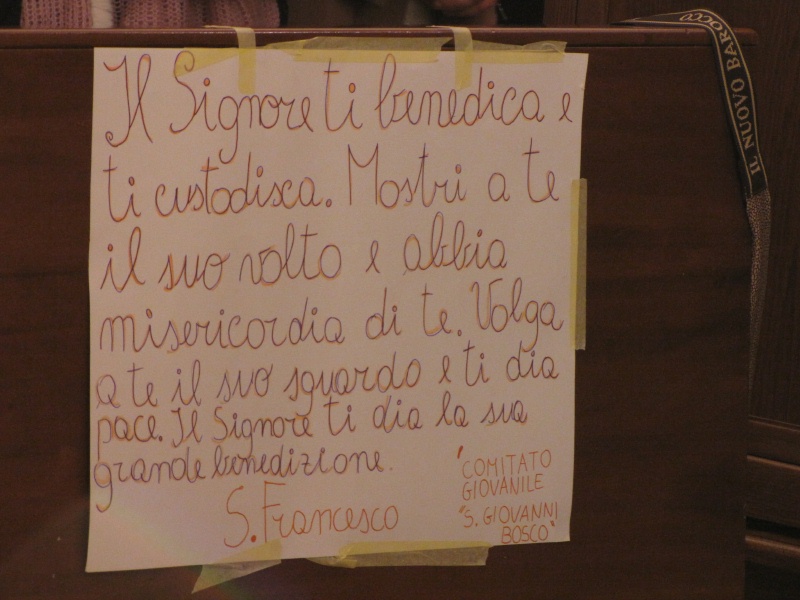 Il Signore ti benedica e
ti custodisca. Mostri a te
il suo volto e abbia
misericordia di te. Volga
a te il suo sguardo e ti dia
pace. Il Signore ti dia la sua
grande benedizione.
S. Francesco
"COMITATO
GIOVANILE
"S. GIOVANNI
BOSCO"
IL NUOVO BAROCCO